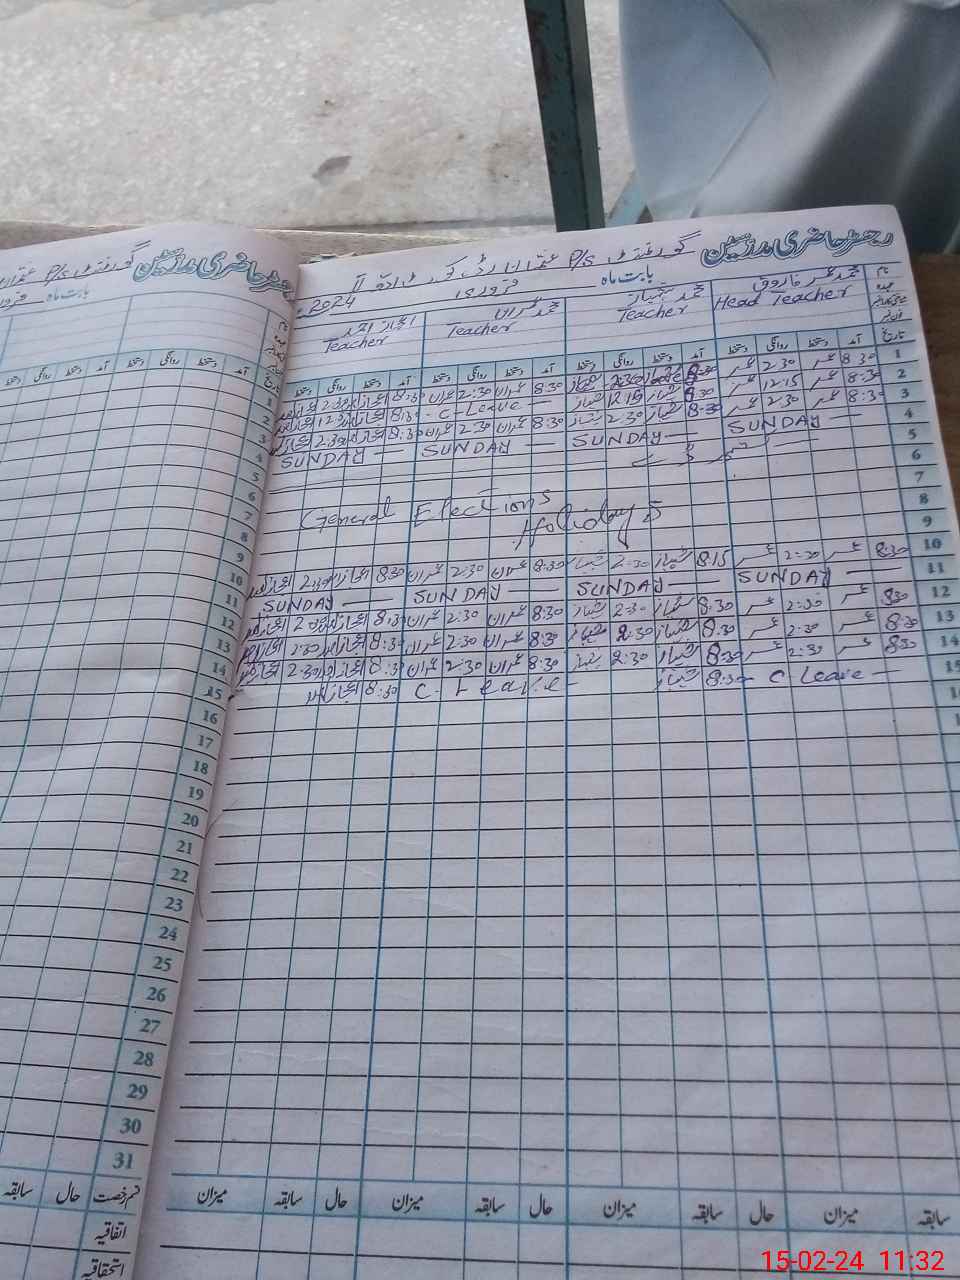 رجسٹر حاضری مدرسین گورنمنٹ P/S
بابت ماہ فروری 2024
نام محمد عمر فاروق محمد شہباز محمد عمران اعجاز احمد
عہدہ Head Teacher Teacher Teacher Teacher
تاریخ آمد دستخط روانگی دستخط آمد دستخط روانگی دستخط آمد دستخط روانگی دستخط آمد دستخط روانگی دستخط
1 8:30 عمر 2:30 عمر 8:30 شہباز 2:30 شہباز 8:30 عمران 2:30 عمران 8:30 اعجاز احمد 2:30 اعجاز احمد
2 8:30 عمر 12:15 عمر 8:30 شہباز 12:15 شہباز - C-Leave - 8:30 اعجاز احمد 12:30 اعجاز احمد
3 8:30 عمر 2:30 عمر 8:30 شہباز 2:30 شہباز 8:30 عمران 2:30 عمران 8:30 اعجاز احمد 2:30 اعجاز احمد
4 SUNDAY SUNDAY SUNDAY SUNDAY
5
6
7
8 General Elections
9 Holidays
10 8:30 عمر 2:30 عمر 8:15 شہباز 2:30 شہباز 8:30 عمران 2:30 عمران 8:30 اعجاز احمد 2:30 اعجاز احمد
11 SUNDAY SUNDAY SUNDAY SUNDAY
12 8:30 عمر 2:30 عمر 8:30 شہباز 2:30 شہباز 8:30 عمران 2:30 عمران 8:30 اعجاز احمد 2:30 اعجاز احمد
13 8:30 عمر 2:30 عمر 8:30 شہباز 2:30 شہباز 8:30 عمران 2:30 عمران 8:30 اعجاز احمد 2:30 اعجاز احمد
14 8:30 عمر 2:30 عمر 8:30 شہباز 2:30 شہباز 8:30 عمران 2:30 عمران 8:30 اعجاز احمد 2:30 اعجاز احمد
15 C Leave - 8:30 شہباز C. Leave - 8:30 اعجاز احمد
سابقہ میزان حال سابقہ میزان حال سابقہ میزان حال سابقہ میزان
رجسٹر حاضری مدرسین گورنمنٹ P/S
بابت ماہ
نام
تاریخ آمد دستخط روانگی دستخط آمد دستخط روانگی دستخط
1
2
3
4
5
6
7
8
9
10
11
12
13
14
15
16
17
18
19
20
21
22
23
24
25
26
27
28
29
30
31
قسم رخصت حال سابقہ
اتفاقیہ
استحقاقیہ
15-02-24 11:32